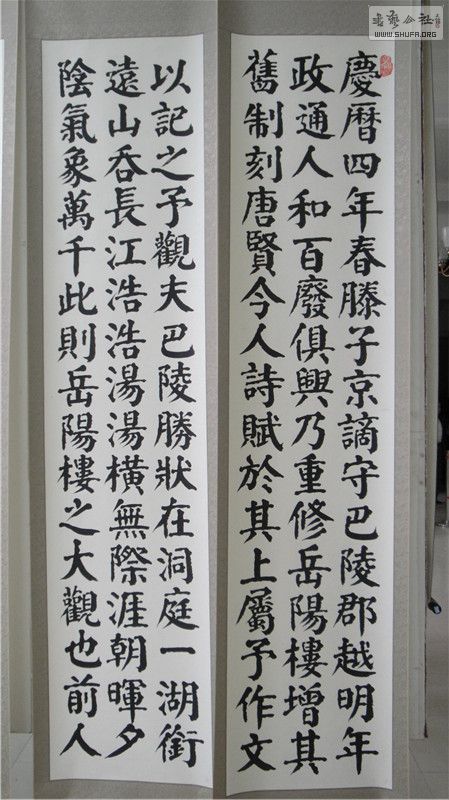 慶曆四年春滕子京謫守巴陵郡越明年
政通人和百廢俱興乃重修岳陽樓增其
舊制刻唐賢今人詩賦於其上屬予作文
以記之予觀夫巴陵勝狀在洞庭一湖銜
遠山吞長江浩浩湯湯橫無際涯朝暉夕
陰氣象萬千此則岳陽樓之大觀也前人
書藝公社
WWW.SHUFA.ORG